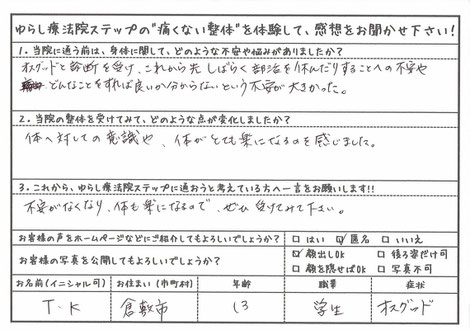 ゆらし療法院ステップの"痛くない整体"を体験して、感想をお聞かせ下さい!
1.当院に通う前は、身体に関して、どのような不安や悩みがありましたか?
オスグッドと診断を受け、これから先しばらく部活を休んだりすることへの不安や
どんなことをすれば良いか分からないという不安が大きかった。
2.当院の整体を受けてみて、どのような点が変化しましたか?
体へ対しての意識や、体がとても楽になるのを感じました。
3.これから、ゆらし療法院ステップに通おうと考えている方へ一言をお願いします!!
不安がなくなり、体も楽になるので、ぜひ受けてみて下さい。
お客様の声をホームページなどにご紹介してもよろしいでしょうか? □はい ☑匿名 □いいえ
お客様の写真を公開してもよろしいでしょうか? ☑顔出しOK □後ろ姿だけ可
□顔を隠せばOK □写真不可
お名前(イニシャル可) お住まい(市町村) 年齢 職業 症状
T・K 倉敷市 13 学生 オスグッド